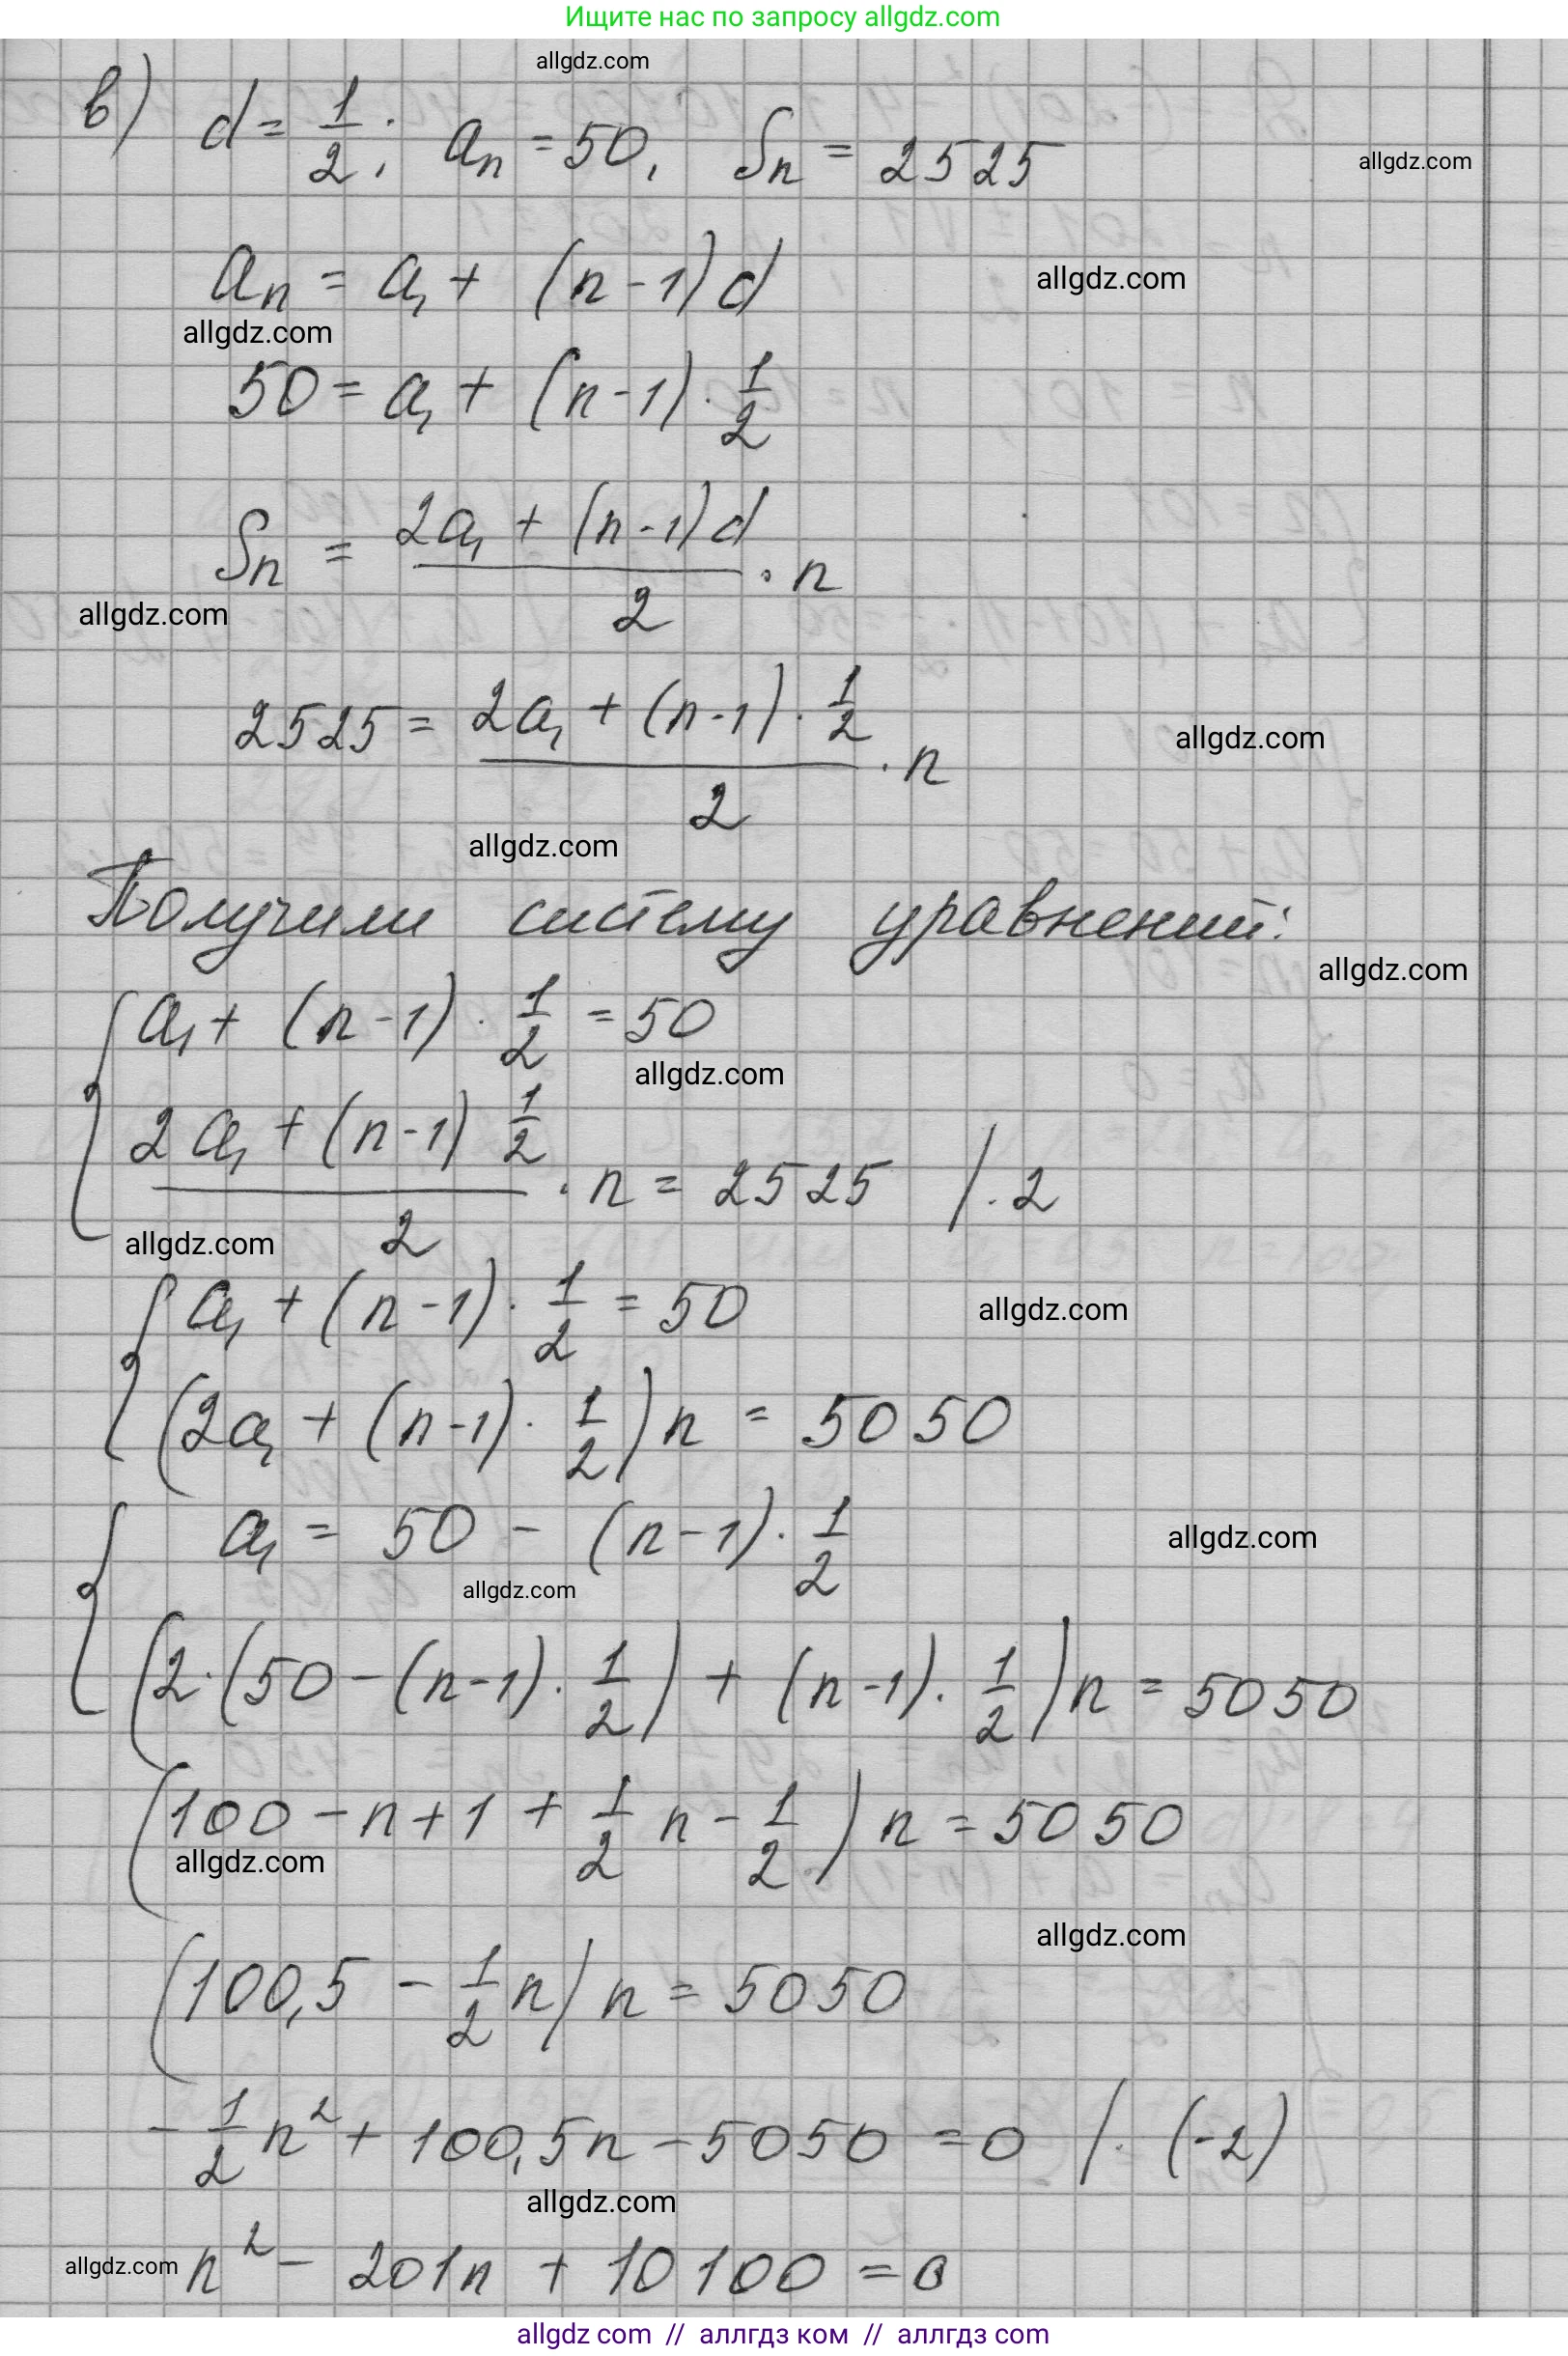 Ищите нас по запросу allgdz.com
allgdz.com
в) d = 1/2; aₙ = 50, Sₙ = 2525
allgdz.com
aₙ = a₁ + (n-1)d
allgdz.com
allgdz.com
50 = a₁ + (n-1) · 1/2
Sₙ = (2a₁ + (n-1)d)/2 · n
allgdz.com
2525 = (2a₁ + (n-1) · 1/2)/2 · n
allgdz.com
allgdz.com
Получили систему уравнений:
allgdz.com
{ a₁ + (n-1) · 1/2 = 50
allgdz.com
(2a₁ + (n-1) 1/2)/2 · n = 2525 / · 2
allgdz.com
{ a₁ + (n-1) · 1/2 = 50
allgdz.com
(2a₁ + (n-1) · 1/2) n = 5050
{ a₁ = 50 - (n-1) · 1/2
allgdz.com
allgdz.com
(2 · (50 - (n-1) · 1/2) + (n-1) · 1/2) n = 5050
(100 - n + 1 + 1/2 n - 1/2) n = 5050
allgdz.com
allgdz.com
(100,5 - 1/2 n) n = 5050
- 1/2 n² + 100,5n - 5050 = 0 / · (-2)
allgdz.com
allgdz.com
n² - 201n + 10100 = 0
allgdz com // аллгдз ком // аллгдз com